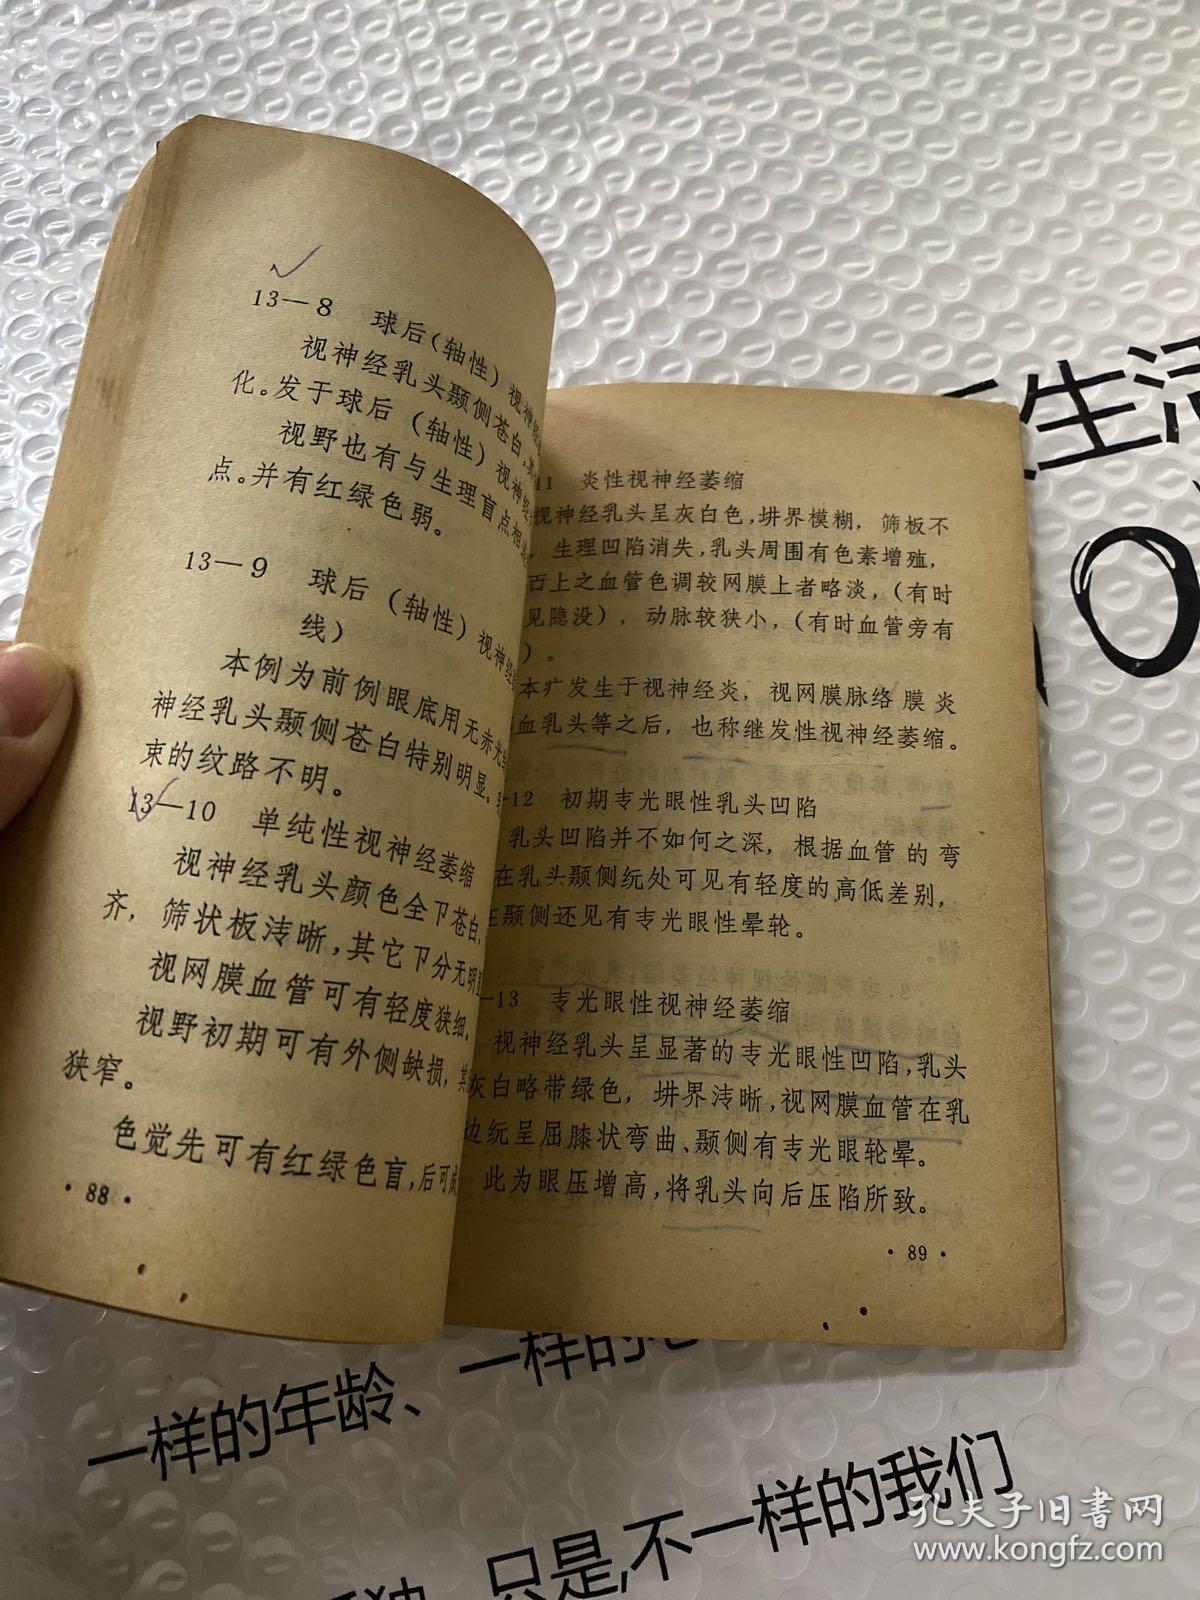 13—8 球后(轴性)视神经
视神经乳头颞侧苍白,
化。发于球后(轴性)视神经
视野也有与生理盲点相
点。并有红绿色弱。
13—9 球后(轴性)视神经
线)
本例为前例眼底用无赤光
神经乳头颞侧苍白特别明显。
束的纹路不明。
13—10 单纯性视神经萎缩
视神经乳头颜色全卩苍白,
齐,筛状板洘晰,其它卩分无明显
视网膜血管可有轻度狭细。
视野初期可有外侧缺损,其
狭窄。
色觉先可有红绿色盲,后可成
·88·
11 炎性视神经萎缩
视神经乳头呈灰白色,界模糊,筛板不
,生理凹陷消失,乳头周围有色素增殖,
上之血管色调较网膜上者略淡,(有时
见隐没),动脉较狭小,(有时血管旁有
)。
本疒发生于视神经炎,视网膜脉络膜炎
血乳头等之后,也称继发性视神经萎缩。
—12 初期光眼性乳头凹陷
乳头凹陷并不如何之深,根据血管的弯
在乳头颞侧处可见有轻度的高低差别,
在颞侧还见有光眼性晕轮。
—13 光眼性视神经萎缩
视神经乳头呈显著的光眼性凹陷,乳头
灰白略带绿色,界晰,视网膜血管在乳
边呈屈膝状弯曲、颞侧有光眼轮晕。
此为眼压增高,将乳头向后压陷所致。
·89·
生活
一样的年龄、一样的
只是,不一样的我们
孔夫子旧书网
www.kongfz.com